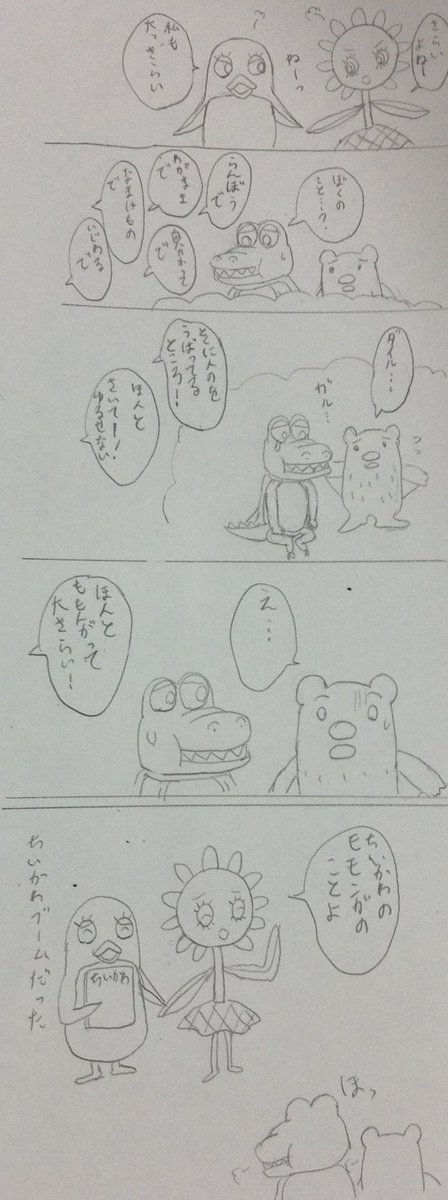 きらい
よねー
ねーっ
私も
大っきらい
ぼくの
こと…？
らんぼう
で
わがまま
で
息などって
で
なまけもの
で
いじわる
で
ダイル…
ガル…
とくに人のを
うばってる
ところー！
ほんと
さいてー！
ゆるせない
え…
ほんと
ももんがって
大きらい！
ちいかわの
モモンガの
ことよ
ちいかわ
ちいかわブームだった
ほっ